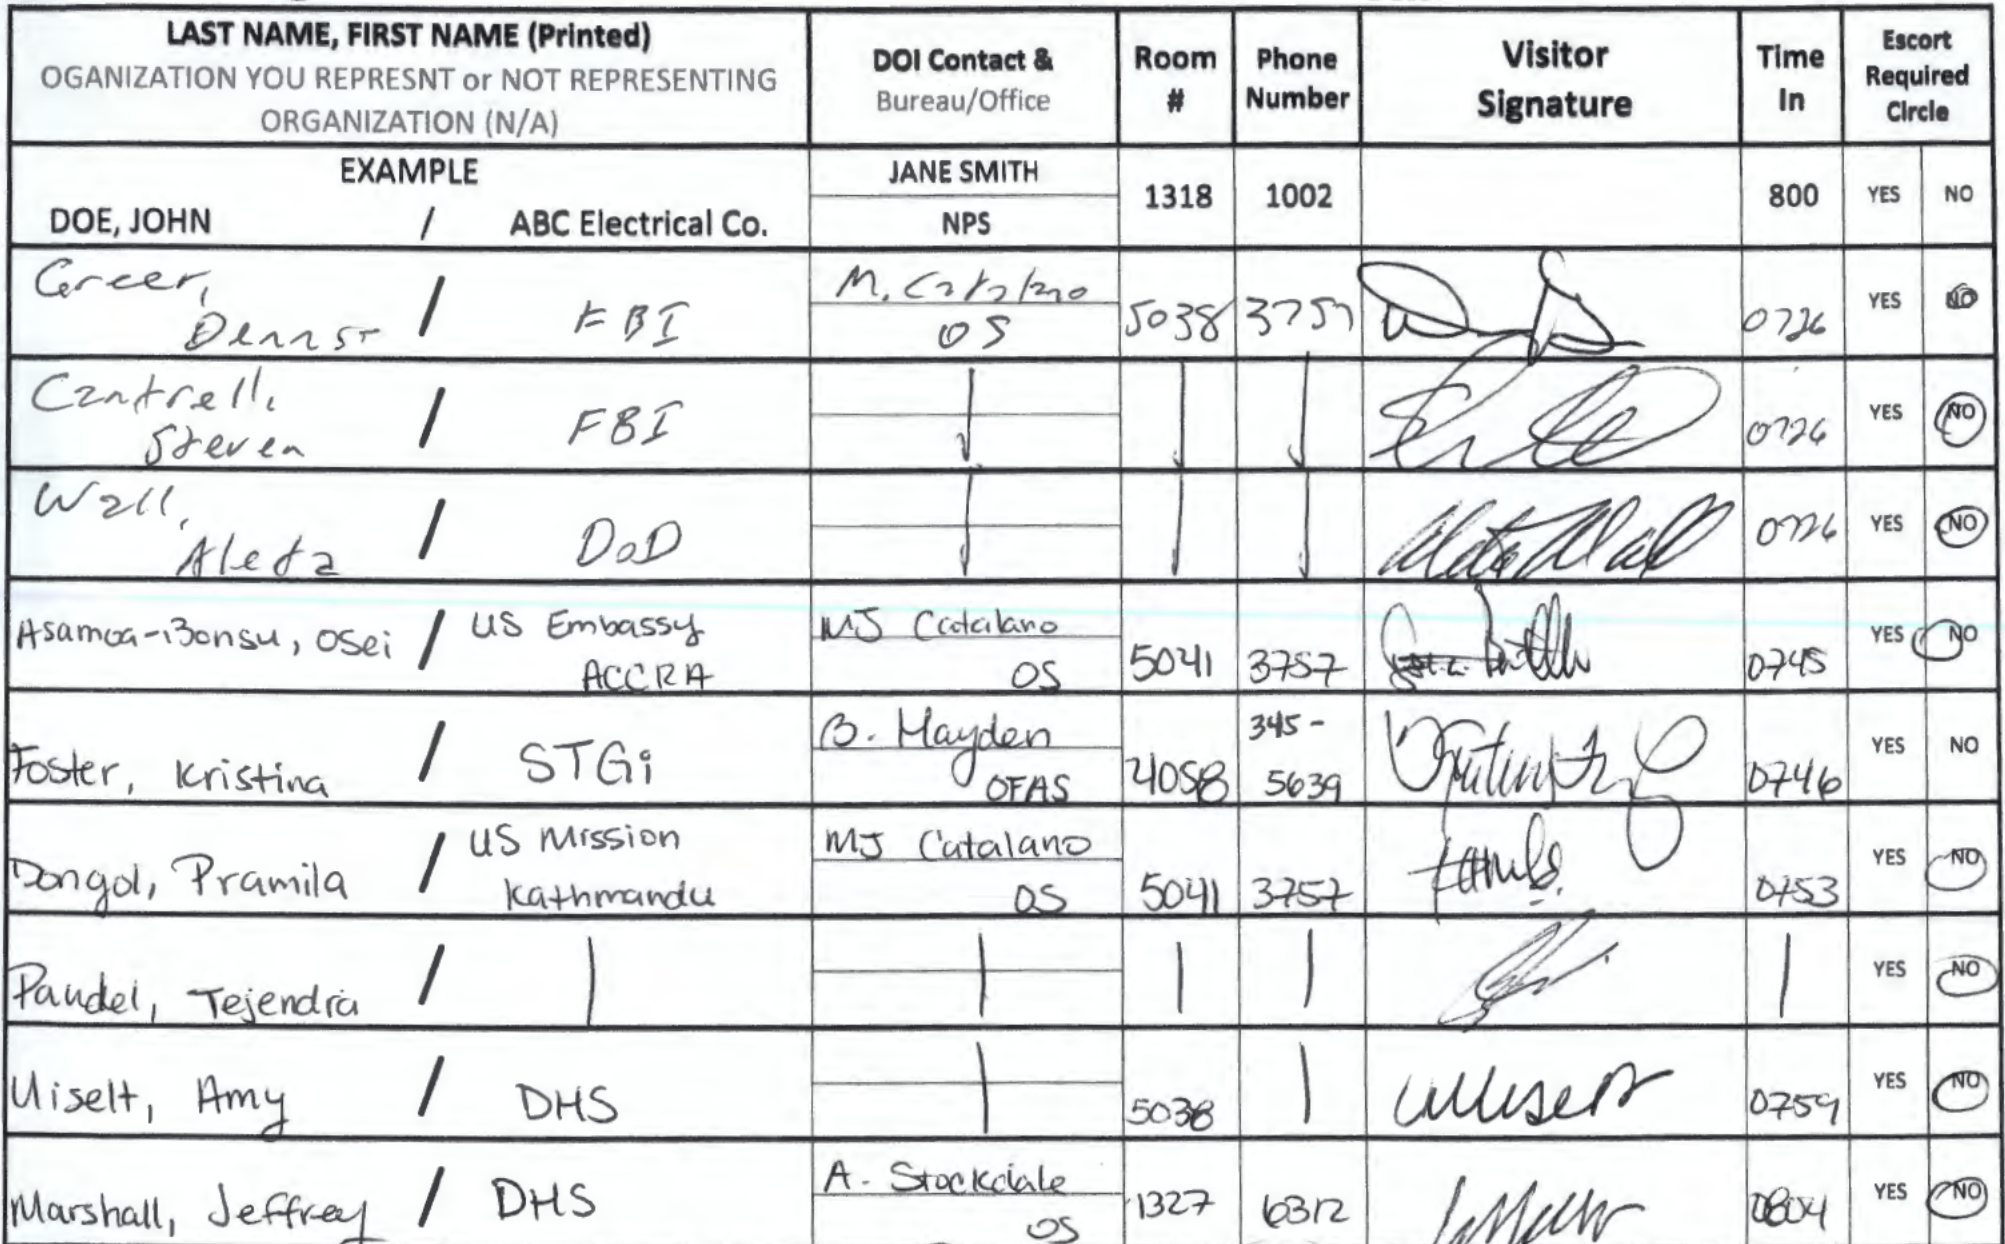 LAST NAME, FIRST NAME (Printed)
OGANIZATION YOU REPRESNT or NOT REPRESENTING
ORGANIZATION (N/A)
DOI Contact &
Bureau/Office
Room
#
Phone
Number
Visitor
Signature
Time
In
Escort
Required
Circle
EXAMPLE
DOE, JOHN / ABC Electrical Co.
JANE SMITH
NPS
1318 1002 800 YES NO
Greer,
Dennis / FBI
M. Catalano
OS
5038 3757 0726 YES NO
Cantrell,
Steven / FBI
0726 YES NO
Wall,
Aleta / DoD
0726 YES NO
Asamoa-Bonsu, Osei / US Embassy
ACCRA
MJ Catalano
OS
5041 3757 0745 YES NO
Foster, Kristina / STGi
B. Hayden
OFAS
4058 345-
5639 0746 YES NO
Dongol, Pramila / US Mission
Kathmandu
MJ Catalano
OS
5041 3757 0753 YES NO
Paudel, Tejendra /
YES NO
Uiselt, Amy / DHS
5038 0759 YES NO
Marshall, Jeffrey / DHS
A. Stockdale
OS
1327 6312 0804 YES NO